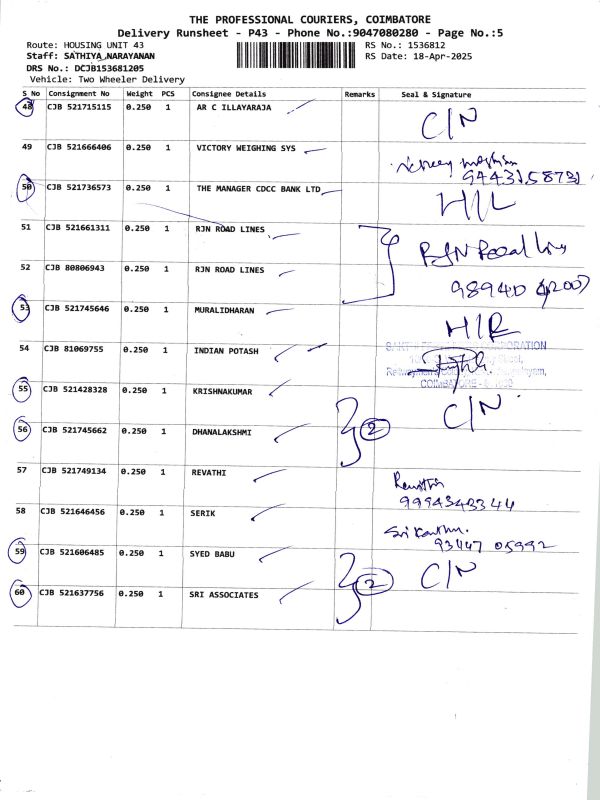 THE PROFESSIONAL COURIERS, COIMBATORE
Delivery Runsheet - P43 - Phone No.:9047080280 - Page No.:5
Route: HOUSING UNIT 43 RS No.: 1536812
Staff: SATHIYA NARAYANAN RS Date: 18-Apr-2025
DRS No.: DCJB153681205
Vehicle: Two Wheeler Delivery
S No Consignment No Weight PCS Consignee Details Remarks Seal & Signature
48 CJB 521715115 0.250 1 AR C ILLAYARAJA C/N
49 CJB 521666406 0.250 1 VICTORY WEIGHING SYS
9443158731
50 CJB 521736573 0.250 1 THE MANAGER CDCC BANK LTD H/L
51 CJB 521661311 0.250 1 RJN ROAD LINES RJN
52 CJB 80806943 0.250 1 RJN ROAD LINES 98940
53 CJB 521745646 0.250 1 MURALIDHARAN H/R
54 CJB 81069755 0.250 1 INDIAN POTASH CORPORATION
COIMBATORE
55 CJB 521428328 0.250 1 KRISHNAKUMAR C/N
56 CJB 521745662 0.250 1 DHANALAKSHMI 2
57 CJB 521749134 0.250 1 REVATHI Revathi
9994343344
58 CJB 521646456 0.250 1 SERIK
93447 05992
59 CJB 521606485 0.250 1 SYED BABU C/N
60 CJB 521637756 0.250 1 SRI ASSOCIATES 2